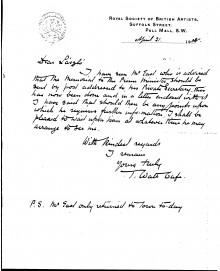 ROYAL SOCIETY OF BRITISH ARTISTS,
SUFFOLK STREET,
PALL MALL, S.W.
April 21.
Dear
I have seen Mr East who is advised
that the Memorial to the Prime Minister should be
sent by post addressed to his Private Secretary, this
has now been done and in a letter enclosed with it
I have said that should there be any points upon
which he requires further information I shall be
pleased to wait upon him at whatever time he may
arrange to see me.
With kindest regards
I remain
Yours truly
T. Watt Cafe
P.S. Mr East only returned to Town to-day